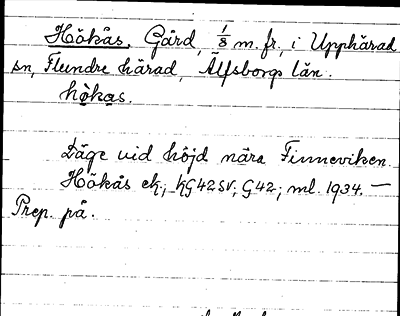 Hökås. Gård, 1/8 m. fr., i Upphärad
sn, Flundre härad, Älfsborgs län.
hø̀kas.
Läge vid höjd nära Finneviken.
Hökås ek; KG42SV; G42; ml. 1934. —
Prep. på.